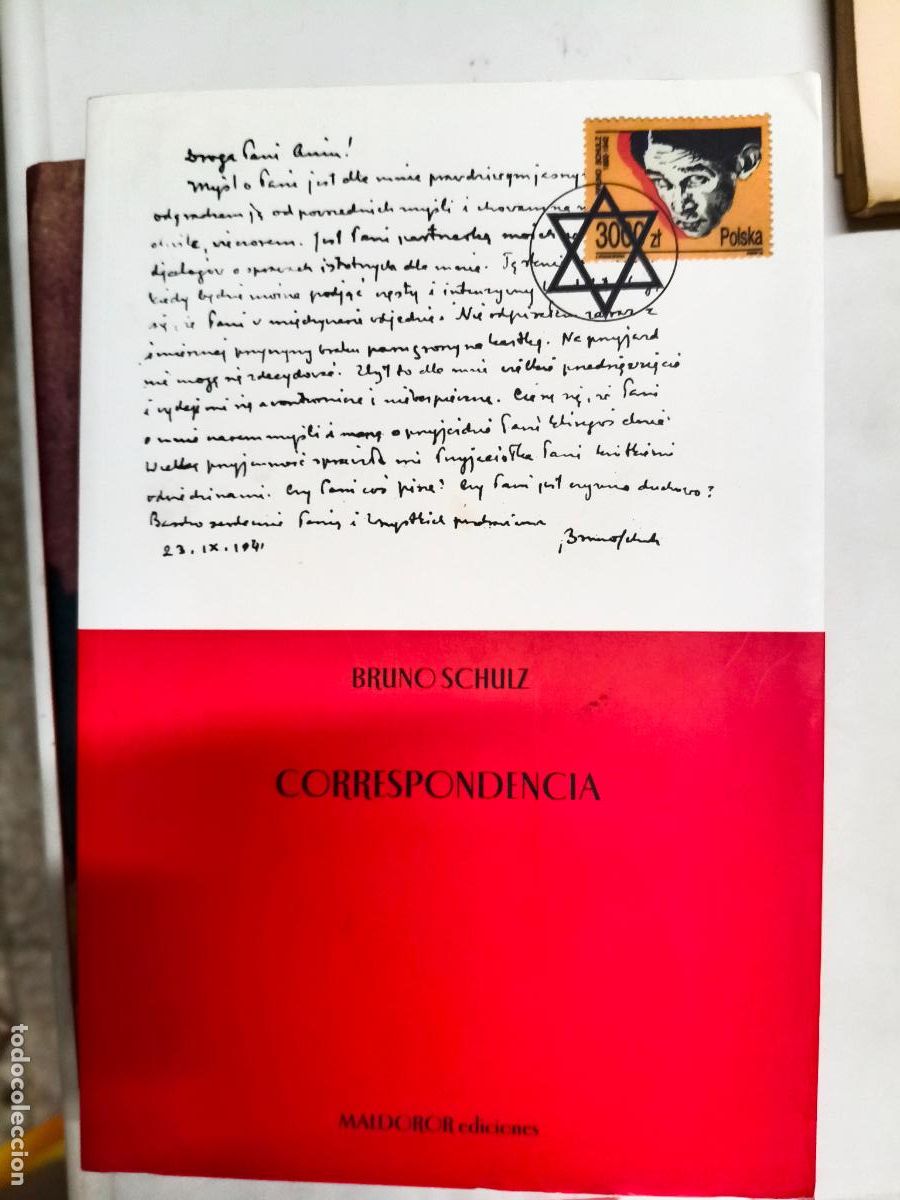 Droga Pani Aniu!
Myśl o Pani jest dla mnie prawdziwym jasnym
odgradzam ją od powszednich myśli i chowam na
chwile, wieczorem. Jest Pani partnerką moich
djalogów o sprawach istotnych dla mnie.
kiedy będzie można podjąć częsty i intenzywny
się, że Pani w międzyczasie odjedzie. Nie odpisałem zaraz z
śmiesznej przyczyny braku pięciu groszy na kartkę. Na przyjazd
nie mogę się zdecydować. Zbyt to dla mnie wielkie przedsięwzięcie
i wydaje mi się awanturnicze i niebezpieczne. Cieszę się, że Pani
o mnie czasem myśli i marzę o przyjeździe Pani któregoś dnia.
Wielką przyjemność sprawiła mi Przyjaciółka Pani krótkiemi
odwiedzinami. Czy Pani coś pisze? Czy Pani jest czynna duchowo?
Bardzo serdecznie Panią i Wszystkich pozdrawiam
23. IX. 1941
Bruno Schulz
BRUNO SCHULZ
1892-1942
3000 zł
Polska
BRUNO SCHULZ
CORRESPONDENCIA
MALDOROR ediciones
todocoleccion